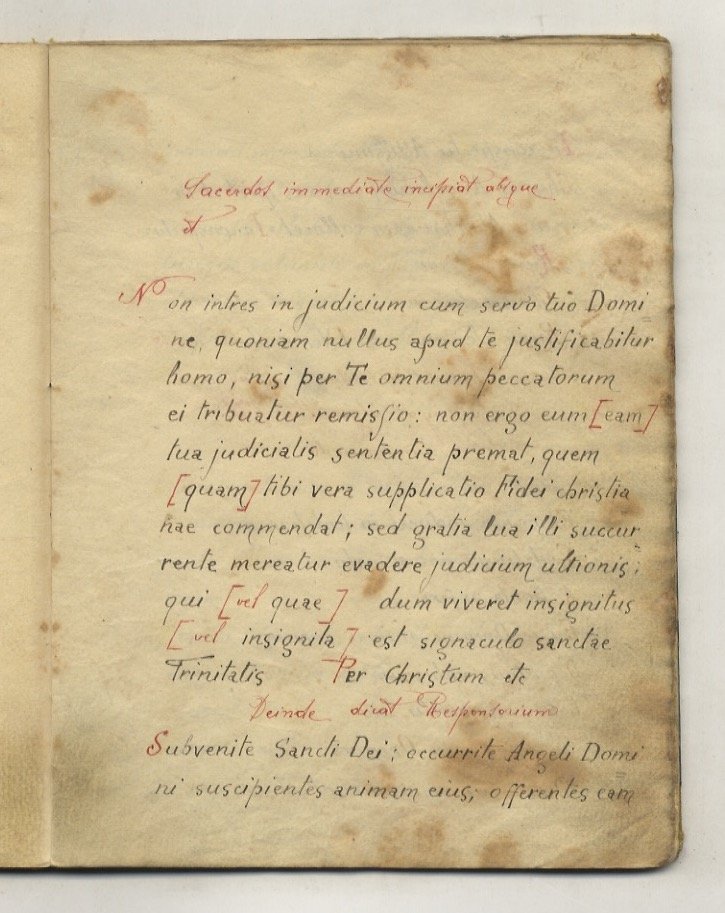 Sacerdos immediate incipiat absque
et
Non intres in judicium cum servo tuo Domi=
ne, quoniam nullus apud te justificabitur
homo, nisi per Te omnium peccatorum
ei tribuatur remissio: non ergo eum [eam]
tua judicialis sententia premat, quem
[quam] tibi vera supplicatio Fidei christia
nae commendat; sed gratia tua illi succur=
rente mereatur evadere judicium ultionis;
qui [vel quae] dum viveret insignitus
[vel insignita] est signaculo sanctae
Trinitatis Per Christum etc
Deinde dicat Responsorium
Subvenite Sancti Dei; occurrite Angeli Domi=
ni suscipientes animam eius; offerentes eam